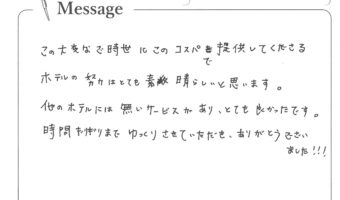 Message
この大変なご時世にこのコスパを提供してくださる
で
ホテルの努力はとても素敵晴らしいと思います。
他のホテルには無いサービスがあり、とても良かったです。
時間ギリギリまでゆっくりさせていただき、ありがとうござい
ました!!!